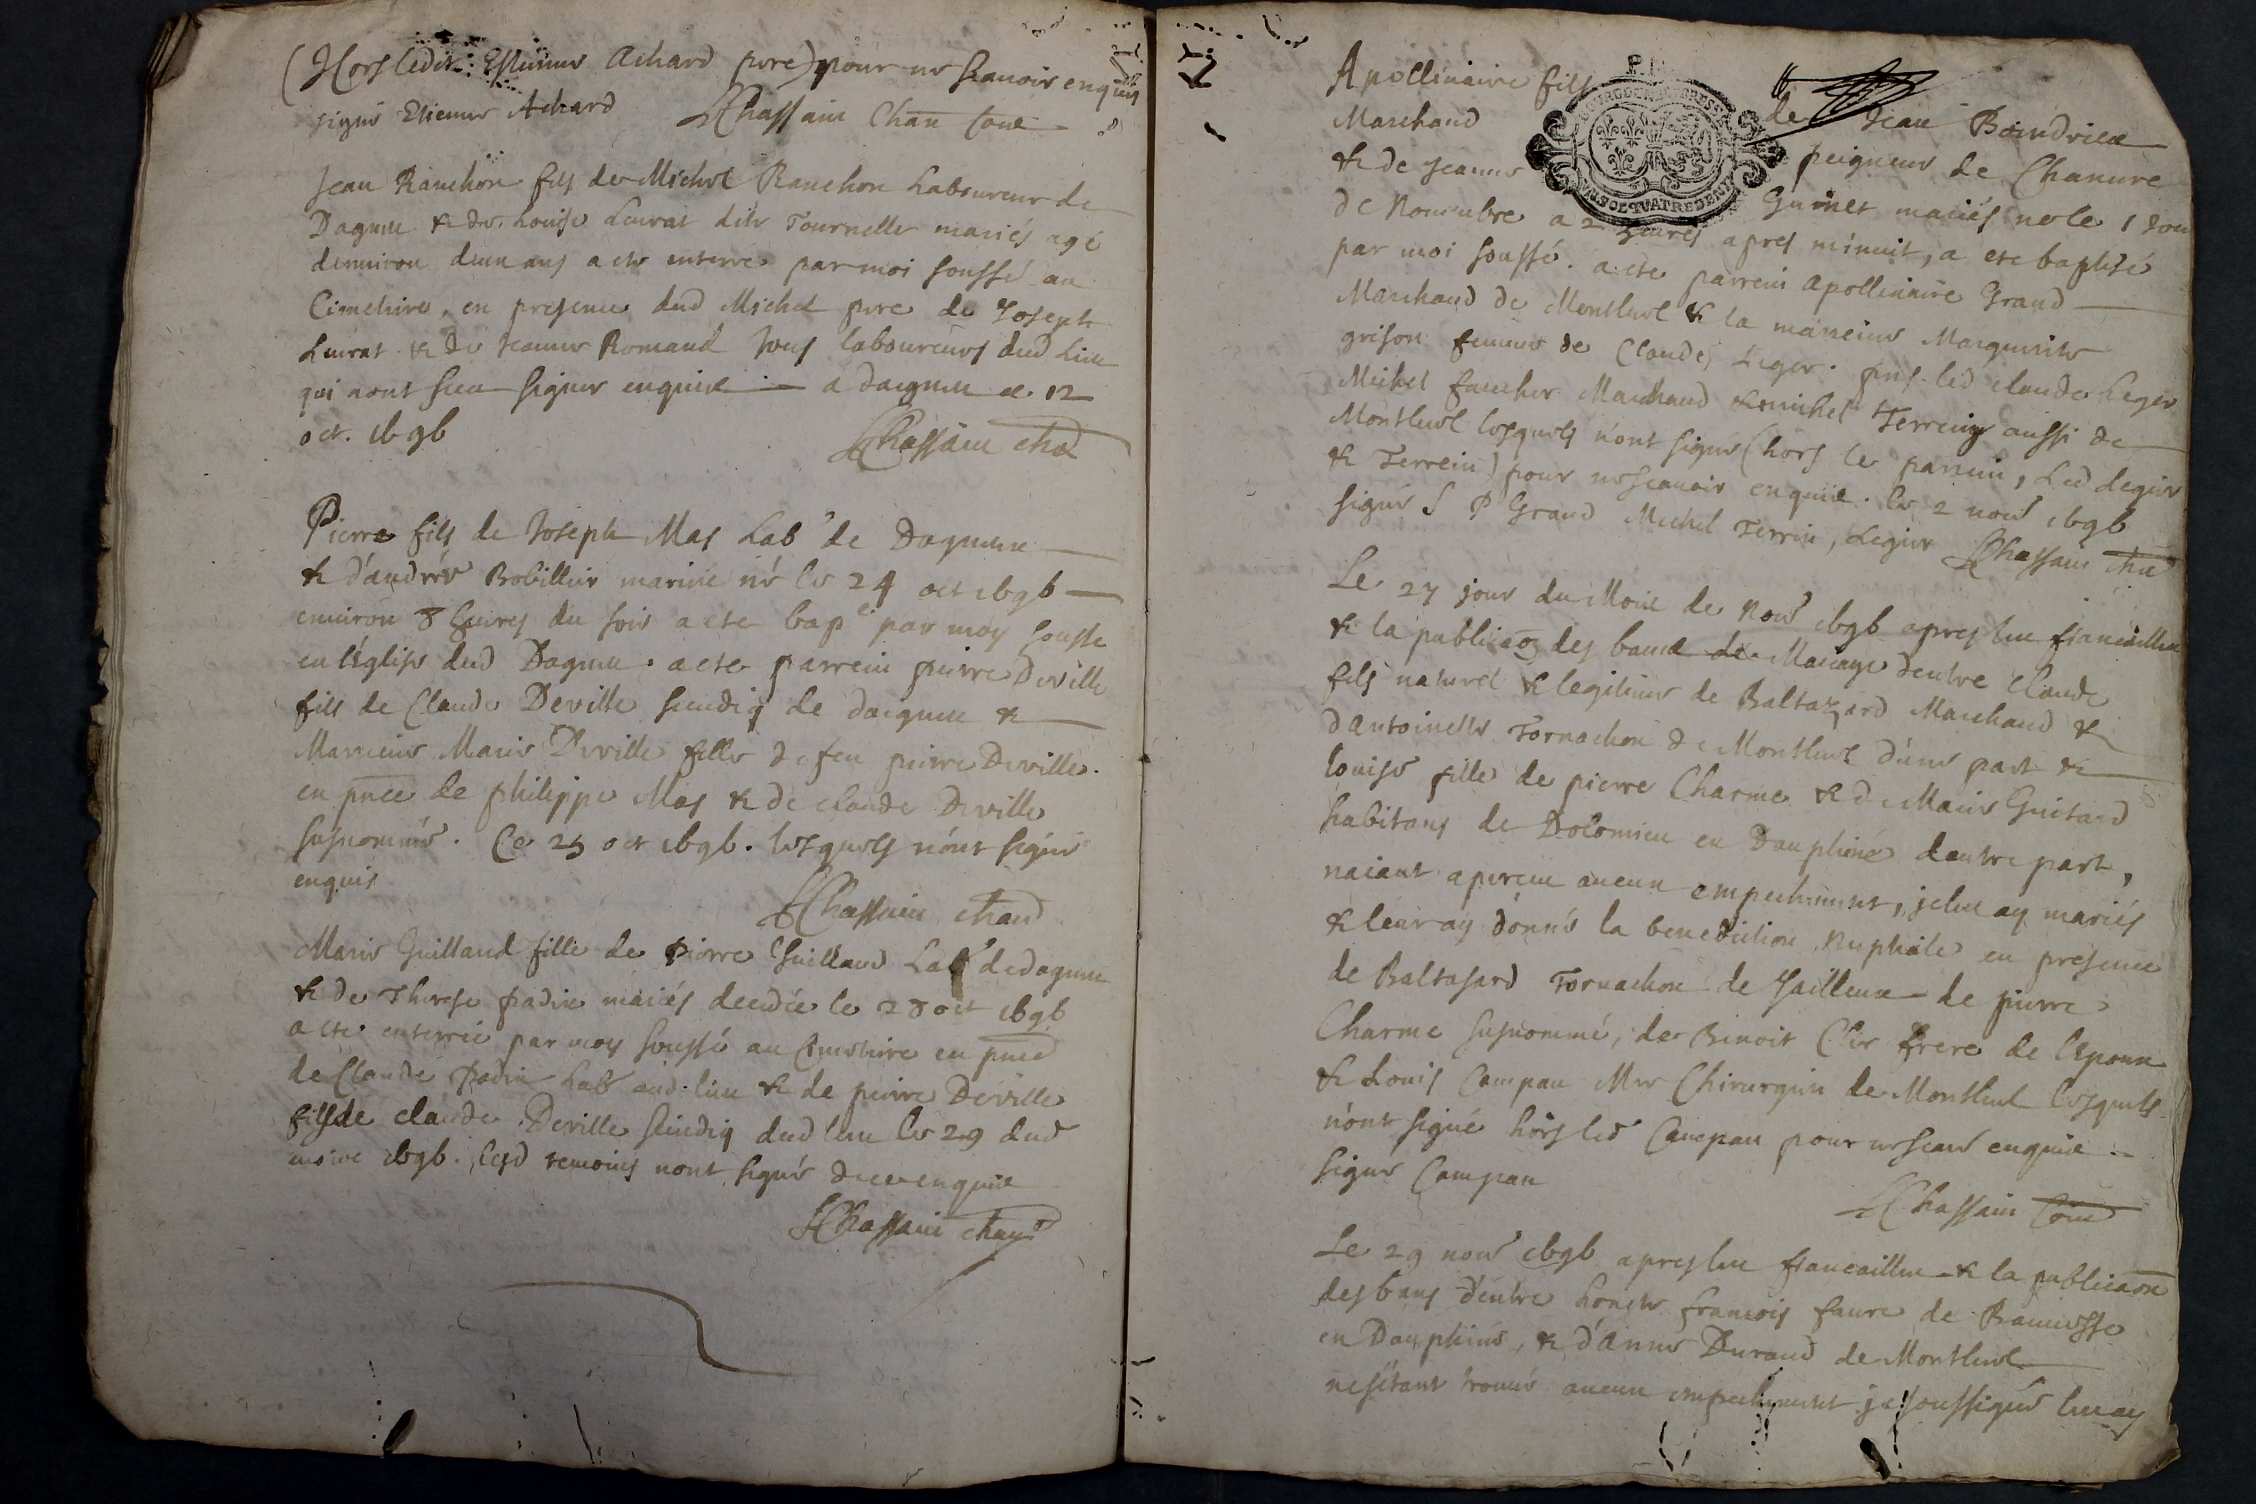 (Hors ledit Estienne Achard pere) pour ne scavoir enquis
signé Etienne Achard LChassain Chan Coué
Jean Ranchon fils de Michel Ranchon Laboureur de
Dagneu & de Louise Leurat dite Tournelle mariés agé
denviron deux ans a ete enterré par moi soussé au
Cimetiere, en presence dud Michel pere de Joseph
Leurat & de Jeanne Romand tous laboureurs dud lieu
qui nont sceu signer enquis a dagneu ce 12
oct. 1696 LChassain cha
Pierre fils de Joseph Mas Labr de Dagneu
& d'andrée Robillier mariné né le 24 oct 1696
environ 8 heures du soir a ete bapé par moy sousse
en l'église dud Dagneu. a ete parrein pierre Deville
fils de Claude Deville scindiq de dagneu &
Marreine Marie Deville fille de feu pierre Deville.
en pnce de philippe Mas & de claude Deville
susnommés. Ce 25 oct 1696. lesquels n'ont signé
enquis
LChassain chan
Marie Guilland fille de Pierre Guilland Labr de dagneu
& de Therese padin mariés decedée le 28 oct 1696
a ete enterrée par moy soussé au Cimetiere en pnce
de Claude Padin Labr aud. lieu & de pierre Deville
fils de claude Deville scindiq dud lieu le 29 dud
mois 1696. lesd temoins nont signé de ce enquis
LChassain chan
Apollinaire fils de Jean Baudrier
Marchand peigneur de Chanvre
& de Jeanne Guinet mariés né le 1 jour
de Novembre a 2 heures apres minuit, a ete baptisé
par moi soussé. a ete parrein Apollinaire Grand
Marchand de Montluel & la marreine Marguerite
grison femme de Claude Leger. pns. led claude Leger
Michel faucher Marchand & michel Terrein aussi de
Montluel lesquels n'ont signé (hors le parrein, Led Legier
& Terrein) pour ne scavoir enquis. le 2 nov 1696
signé S P Grand Michel Terrin, Legier LChassain cha
Le 27 jour du Mois de Nov 1696 apres les fiancailles
& la publicaon des bancs de Mariage dentre Claude
fils naturel & legitime de Baltazard Marchand &
d'Antoinette Tornachon de Montluel d'une part &
louise fille de pierre Charme & de Marie Guitard
habitans de Dolomieu en Dauphiné dautre part,
naiant apercu aucun empechement, je les ay mariés
& leur ay donné la benediction Nuptiale en presence
de Baltasard Tornachon de Jailleux de pierre
Charme susnommé, de Benoit Clor frere de l'epoux
& Louis Campan Mre Chirurgien de Montluel lesquels
n'ont signé hors led Campan pour ne scavr enquis
signé Campan
LChassain Coué
Le 29 nov 1696 apres les fiancailles & la publicaon
des bans d'entre honete francois faure de
en Dauphiné, & d'Anne Durand de Montluel
ne s'etant trouvé aucun empechement je soussigné les ay